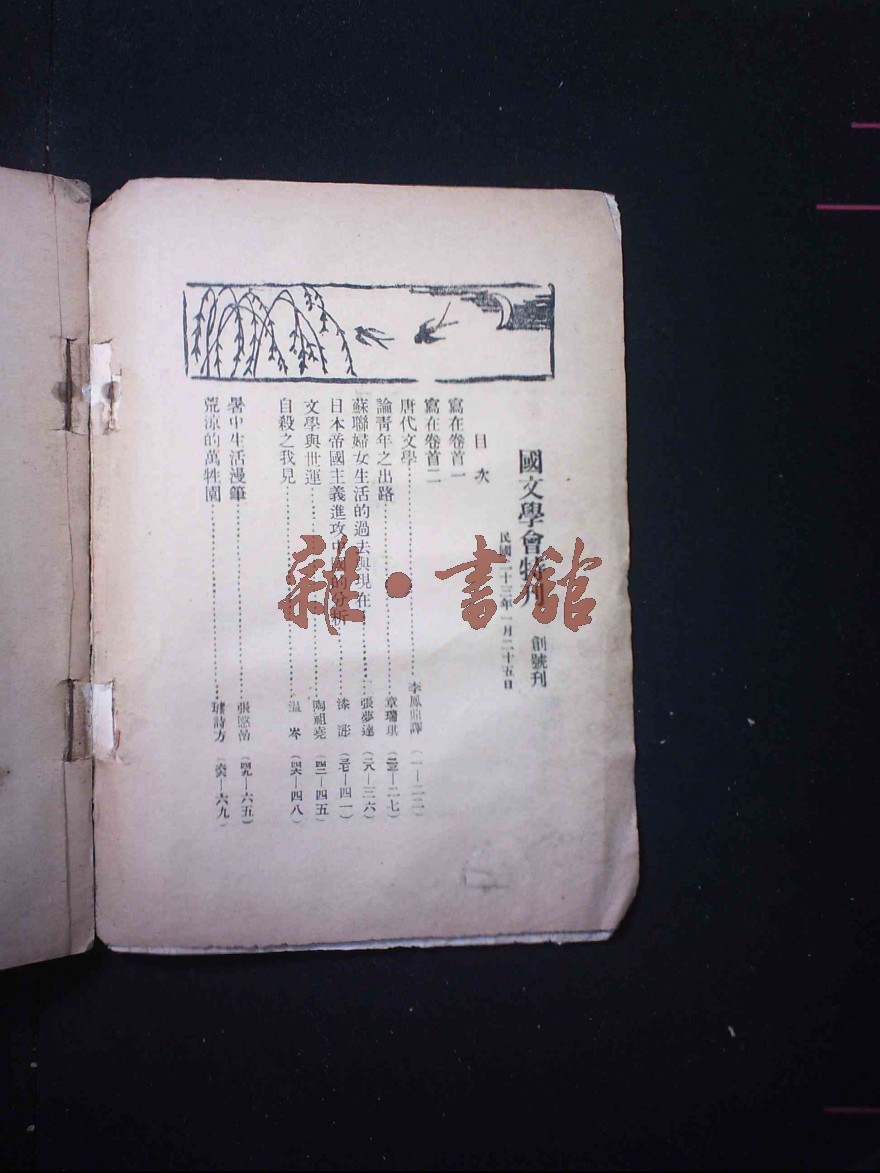 國文學會特刊 創號刊
民國二十三年一月二十五日
目次
寫在卷首一
寫在卷首二
唐代文學 李鳳 譯 (一—二二)
論青年之出路 章瑞琪 (二三—二七)
蘇聯婦女生活的過去與現在 張夢達 (二八—三六)
日本帝國主義進攻中國的分析 漆 (三七—四一)
文學與世運 陶祖堯 (四二—四五)
自殺之我見 溫岑 (四六—四八)
暑中生活漫筆 張 (四九—六五)
荒涼的萬牲園 詩方 (六六—六九)
雜·書館